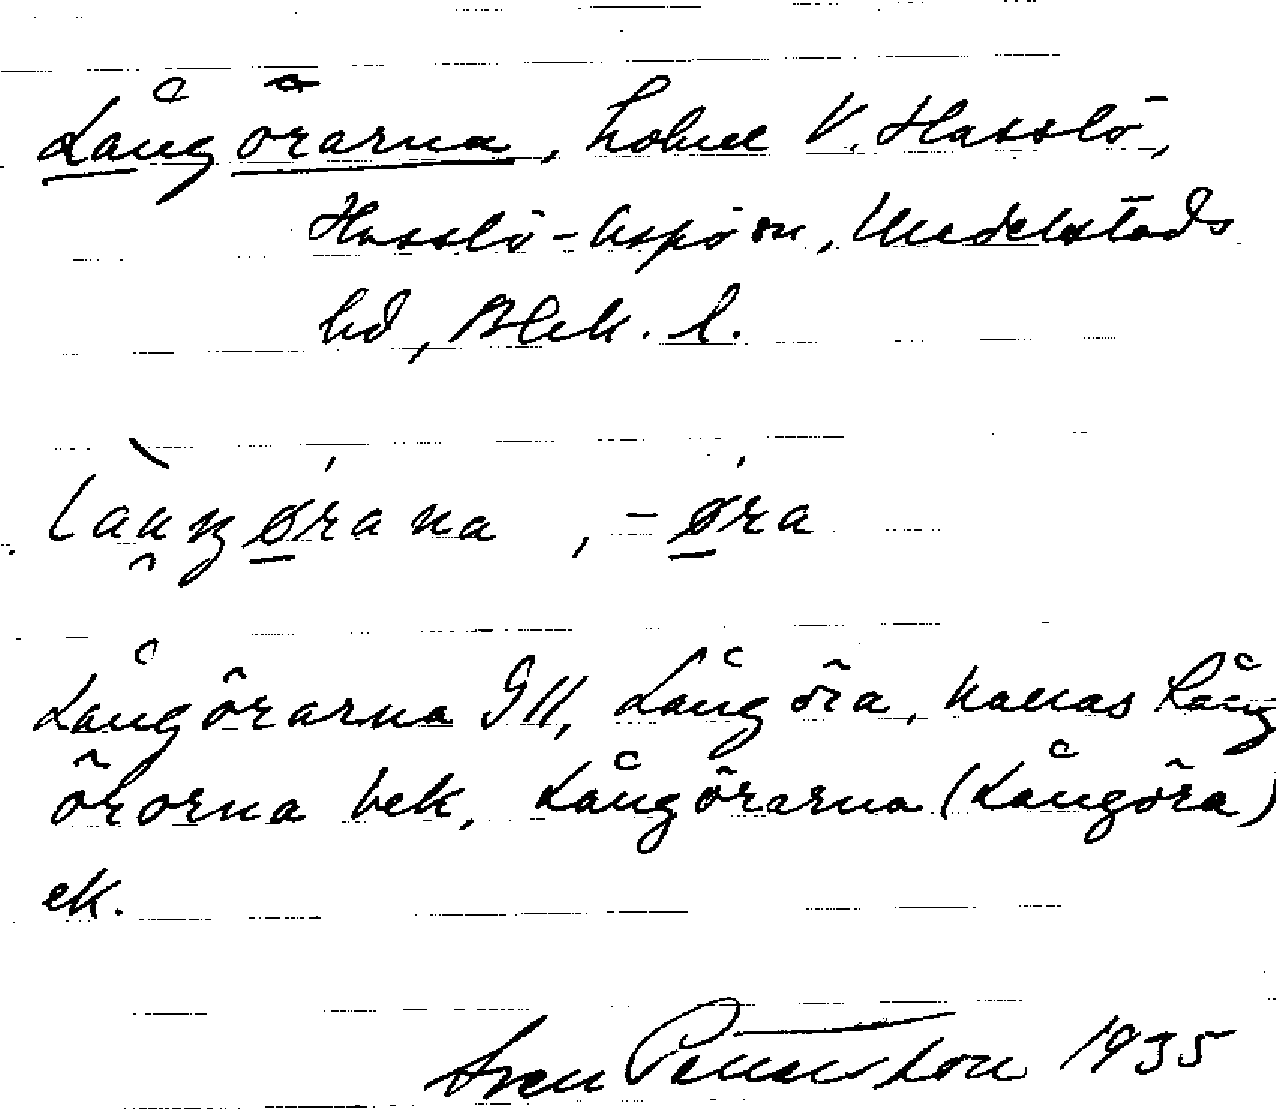 Långörarna, holme V. Hasslö,
Hasslö-Aspö sn, Medelstads
hd, Blek. l.
laŋørana, -øra
Långörarna GII, Långöra, kallas Lång
örorna bek, Långörarna (Långöra)
ek.
Sven Petersson 1935